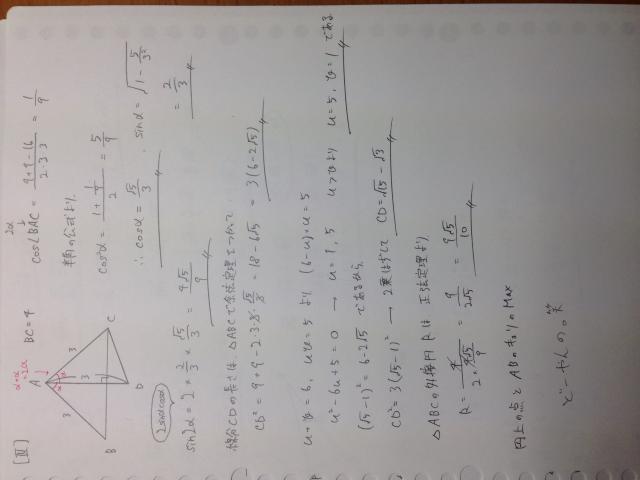 [Ⅲ]
BC=4
α+α
=2α
A
3
3
3
B
C
D
2α
cos∠BAC = (9+9-16)/(2・3・3) = 1/9
半角の公式より
cos²α = (1+1/9)/2 = 5/9
∴ cosα = √5/3 , sinα = √(1-5/3²)
= 2/3
2sinαcosα
sin2α = 2 × 2/3 × √5/3 = 4√5/9
線分CDの長さは、△ABCで余弦定理をつかって
CD² = 9+9-2・3・3・√5/3 = 18-6√5 = 3(6-2√5)
u+v=6, uv=5 より (6-u)・u=5
u²-6u+5=0 → u=1,5 u>vより u=5, v=1 である
(√5-1)²=6-2√5 であるから
CD²=3(√5-1)² → 2乗はずして CD=√15-√3
△ABCの外接円Rは 正弦定理より
R = 4/(2×4√5/9) = 9/2√5 = 9√5/10
円上の点とABのキョリのMax
どーやんの。笑